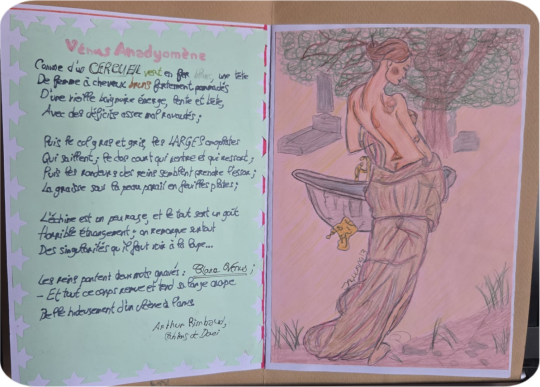 Vénus Anadyomène
Comme d'un CERCUEIL vert en fer blanc, une tête
De femme à cheveux bruns fortement pommadés
D'une vieille baignoire émerge, lente et bête,
Avec des déficits assez mal ravaudés ;
Puis le col gras et gris, les LARGES omoplates
Qui saillent ; le dos court qui rentre et qui ressort ;
Puis les rondeurs des reins semblent prendre l'essor ;
La graisse sous la peau paraît en feuilles plates ;
L'échine est un peu rouge, et le tout sent un goût
Horrible étrangement ; on remarque surtout
Des singularités qu'il faut voir à la loupe...
Les reins portent deux mots gravés : Clara Vénus ;
- Et tout ce corps remue et tend sa large croupe
Belle hideusement d'un ulcère à l'anus
Arthur Rimbaud,
Cahiers de Douai